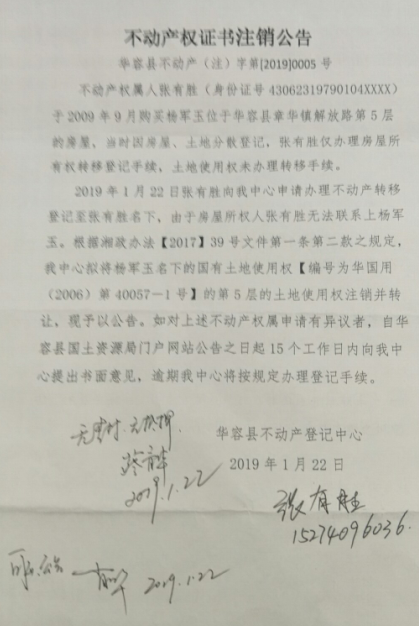 不动产权证书注销公告
华容县不动产（注）字第[2019]0005 号
不动产权属人张有胜（身份证号 43062319790104XXXX）
于 2009 年 9 月购买杨军玉位于华容县章华镇解放路第 5 层
的房屋，当时因房屋、土地分散登记，张有胜仅办理房屋所
有权转移登记手续，土地使用权未办理转移手续。
2019 年 1 月 22 日张有胜向我中心申请办理不动产转移
登记至张有胜名下，由于房屋所权人张有胜无法联系上杨军
玉。根据湘政办法【2017】39 号文件第一条第二款之规定，
我中心拟将杨军玉名下的国有土地使用权【编号为华国用
（2006）第 40057-1 号】的第 5 层的土地使用权注销并转
让，现予以公告。如对上述不动产权属申请有异议者，自华
容县国土资源局门户网站公告之日起 15 个工作日内向我中
心提出书面意见，逾期我中心将按规定办理登记手续。
华容县不动产登记中心
2019 年 1 月 22 日
无查封.无抵押
2019.1.22
张有胜
15274096036.
2019.1.22